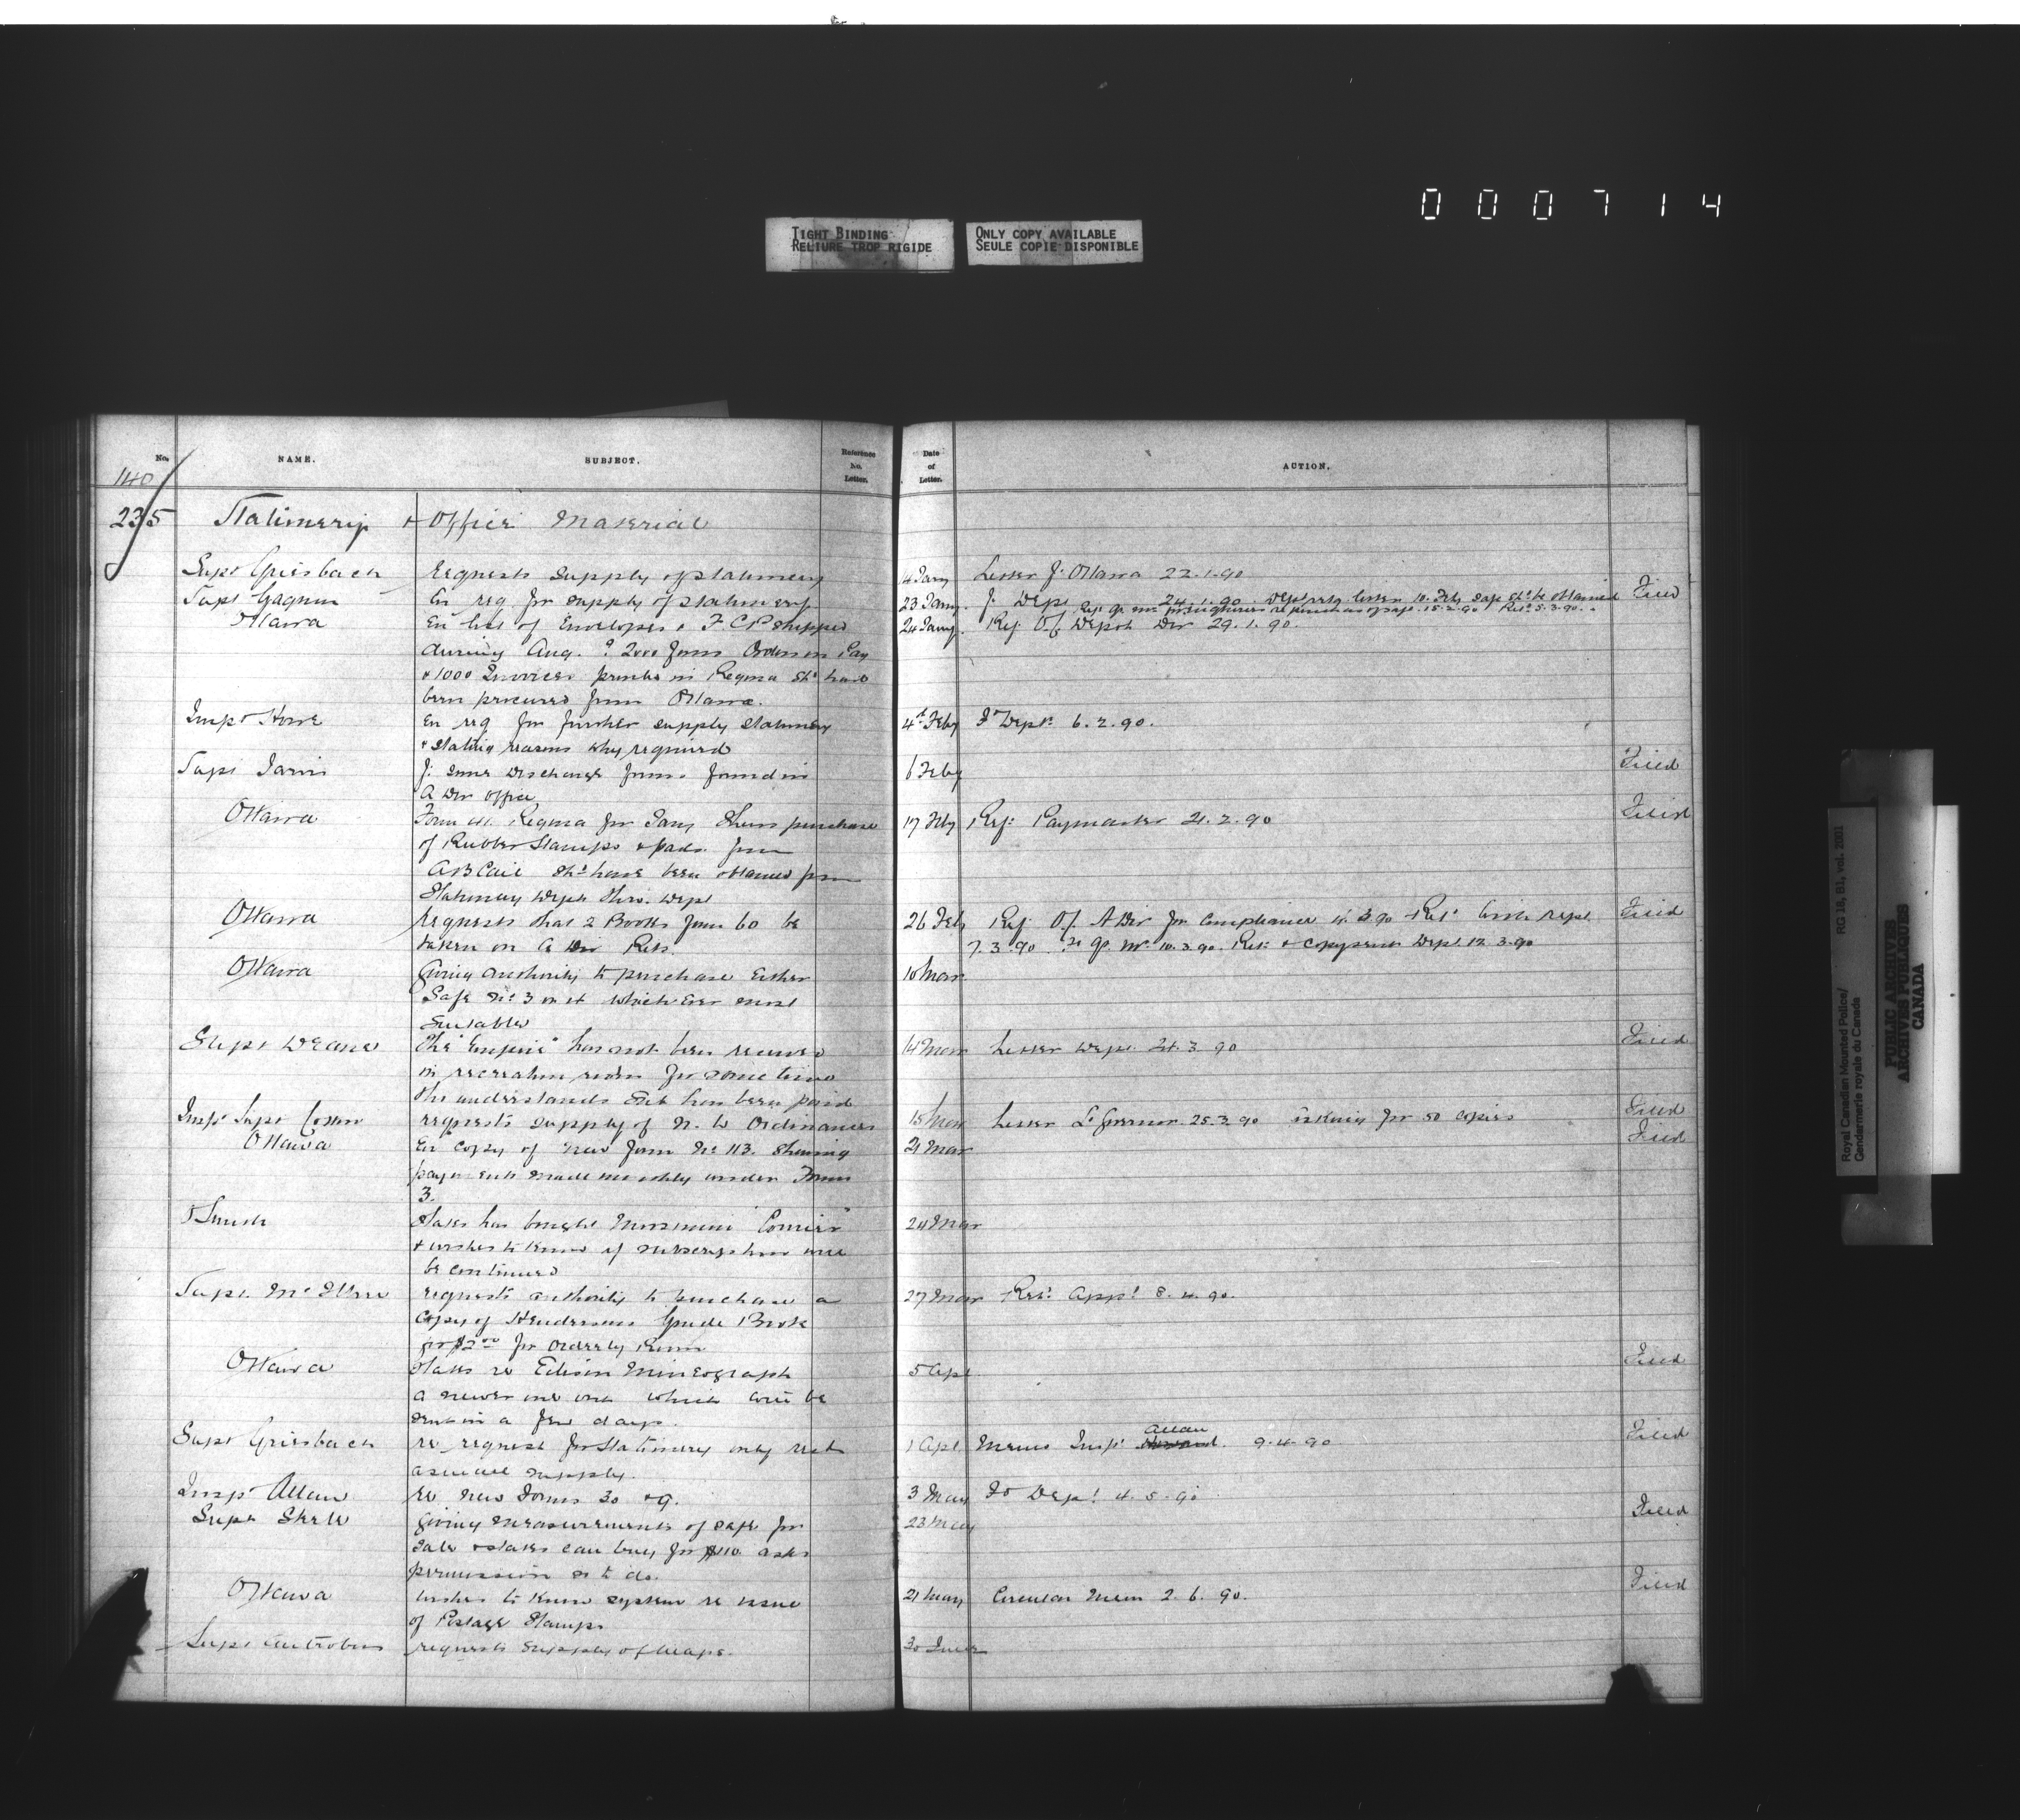 000714
TIGHT BINDING
RELIURE TROP RIGIDE
ONLY COPY AVAILABLE
SEULE COPIE DISPONIBLE
No. NAME. SUBJECT. Reference No. Letter. Date of Letter. ACTION.
140
235 Stationery + Office Material
Supt Griesbach requests supply of stationery 14 Jany Letter f. Ottawa 22.1.90
Supt Gagnon En req for supply of stationery 23 Jany f. Dept 24.1.90 Filed
Ottawa En list of Envelopes & F.C.P. shipped 24 Jany Ref. O.f. Depot Div 29.1.90.
during Aug. ? 2000 forms Orders on Pay
& 1000 Invoices printed in Regina shd have
been procured from Ottawa.
Inspr Howe En req for further supply stationery 4th Feby Fr Dept 6.2.90.
& stating reasons why required
Supt Jarvis f. some Discharge forms found in 6 Feby Filed
A Div office
Ottawa Form Regina for Jany Shows purchase 17 Feby Ref: Paymaster 21.2.90 Filed
of Rubber Stamps & pads from
shd have been obtained from
Stationery Dept thro. Dept
Ottawa requests that 2 Books form 60 be 26 Feb Ref O.f. A Div for compliance 3 90 Ret with rept Filed
taken on A Div Rets. 7.3.90 10.3.90. Ret. & copy sent Dept 12.3.90
Ottawa Giving authority to purchase either 10 Mar
Safe No 3 or 4 which ever most
suitable
Supt Deane The "Empire" has not been received 14 Mar Letter Dept 21.3.90 Filed
in recreation room for some time
tho understands Sub has been paid
Supt Cotton requests supply of N. W Ordinances 15 Mar Letter Lt Governor 25.3.90 asking for 50 copies Filed
Ottawa En copy of new form No 113. Showing 21 Mar Filed
payments made monthly under Form
3.
States has bought Moosomin "Courier" 24 Mar
& wishes to know if subscription will
be continued
Supt. McIllree requests authority to purchase a 27 Mar Ret. Appd 8.4.90.
Copy of Hendersons Guide Book
for $2.00 for Orderly Room
Ottawa States re Edison Mimeograph 5 Apl Filed
a newer one out which will be
sent in a few days.
Supt Griesbach re request for stationery only recd 1 Apl Memo Inspr Allan 9.4.90 Filed
a small supply.
Inspr Allan re new forms 30 & 9. 3 May To Dept 4.5.90
Supt Steele Giving measurements of safe for 23 May Filed
sale & states can buy for $110 asks
permission so to do.
Ottawa wishes to know system re issue 21 May Circular Mem 2.6.90. Filed
of Postage Stamps
Supt Antrobus requests supply of Maps. 30 June
Royal Canadian Mounted Police/ RG 18, B1, vol. 2001
Gendarmerie royale du Canada
PUBLIC ARCHIVES
ARCHIVES PUBLIQUES
CANADA